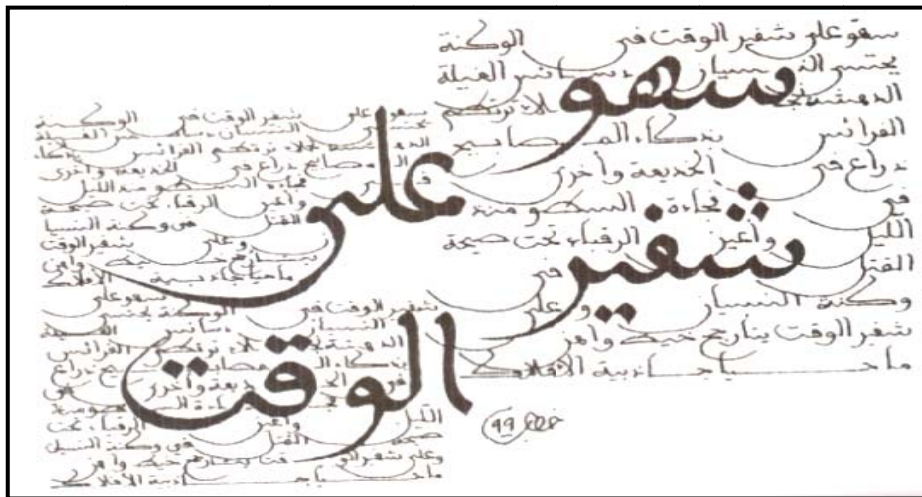 سهو
على
شفير
الوقت
سهو على شفير الوقت في الوكنة
يحتسي النسيان الغيلة
الدهشة
الفرائس بذكاء المصابيح
ذراع في الخديعة وأخرى
في السطو منذ
الليل وأعين الرقباء تحت صيحة
القتل في
وكنة النسيان وعلى
شفير الوقت يتأرجح خيط واهن
جاذبية الأفلاك
سهو على شفير الوقت في الوكنة
يحتسي النسيان الغيلة
الفرائس بذكاء
المصابيح ذراع في الخديعة وأخرى
في السطو منذ الليل
وأعين الرقباء تحت صيحة
القتل في وكنة
وعلى شفير الوقت
يتأرجح خيط واهن
جاذبية الأفلاك
سهو على
شفير الوقت في الوكنة يحتسي
النسيان الغيلة
الفرائس
بذكاء المصابيح ذراع
في الخديعة وأخرى في
السطو منذ
الليل وأعين الرقباء تحت
صيحة القتل في وكنة
وعلى شفير الوقت يتأرجح خيط واهن
جاذبية الأفلاك
99